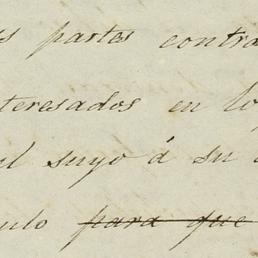 s partes contra
teresados en lo
al suyo á su
ulo para que